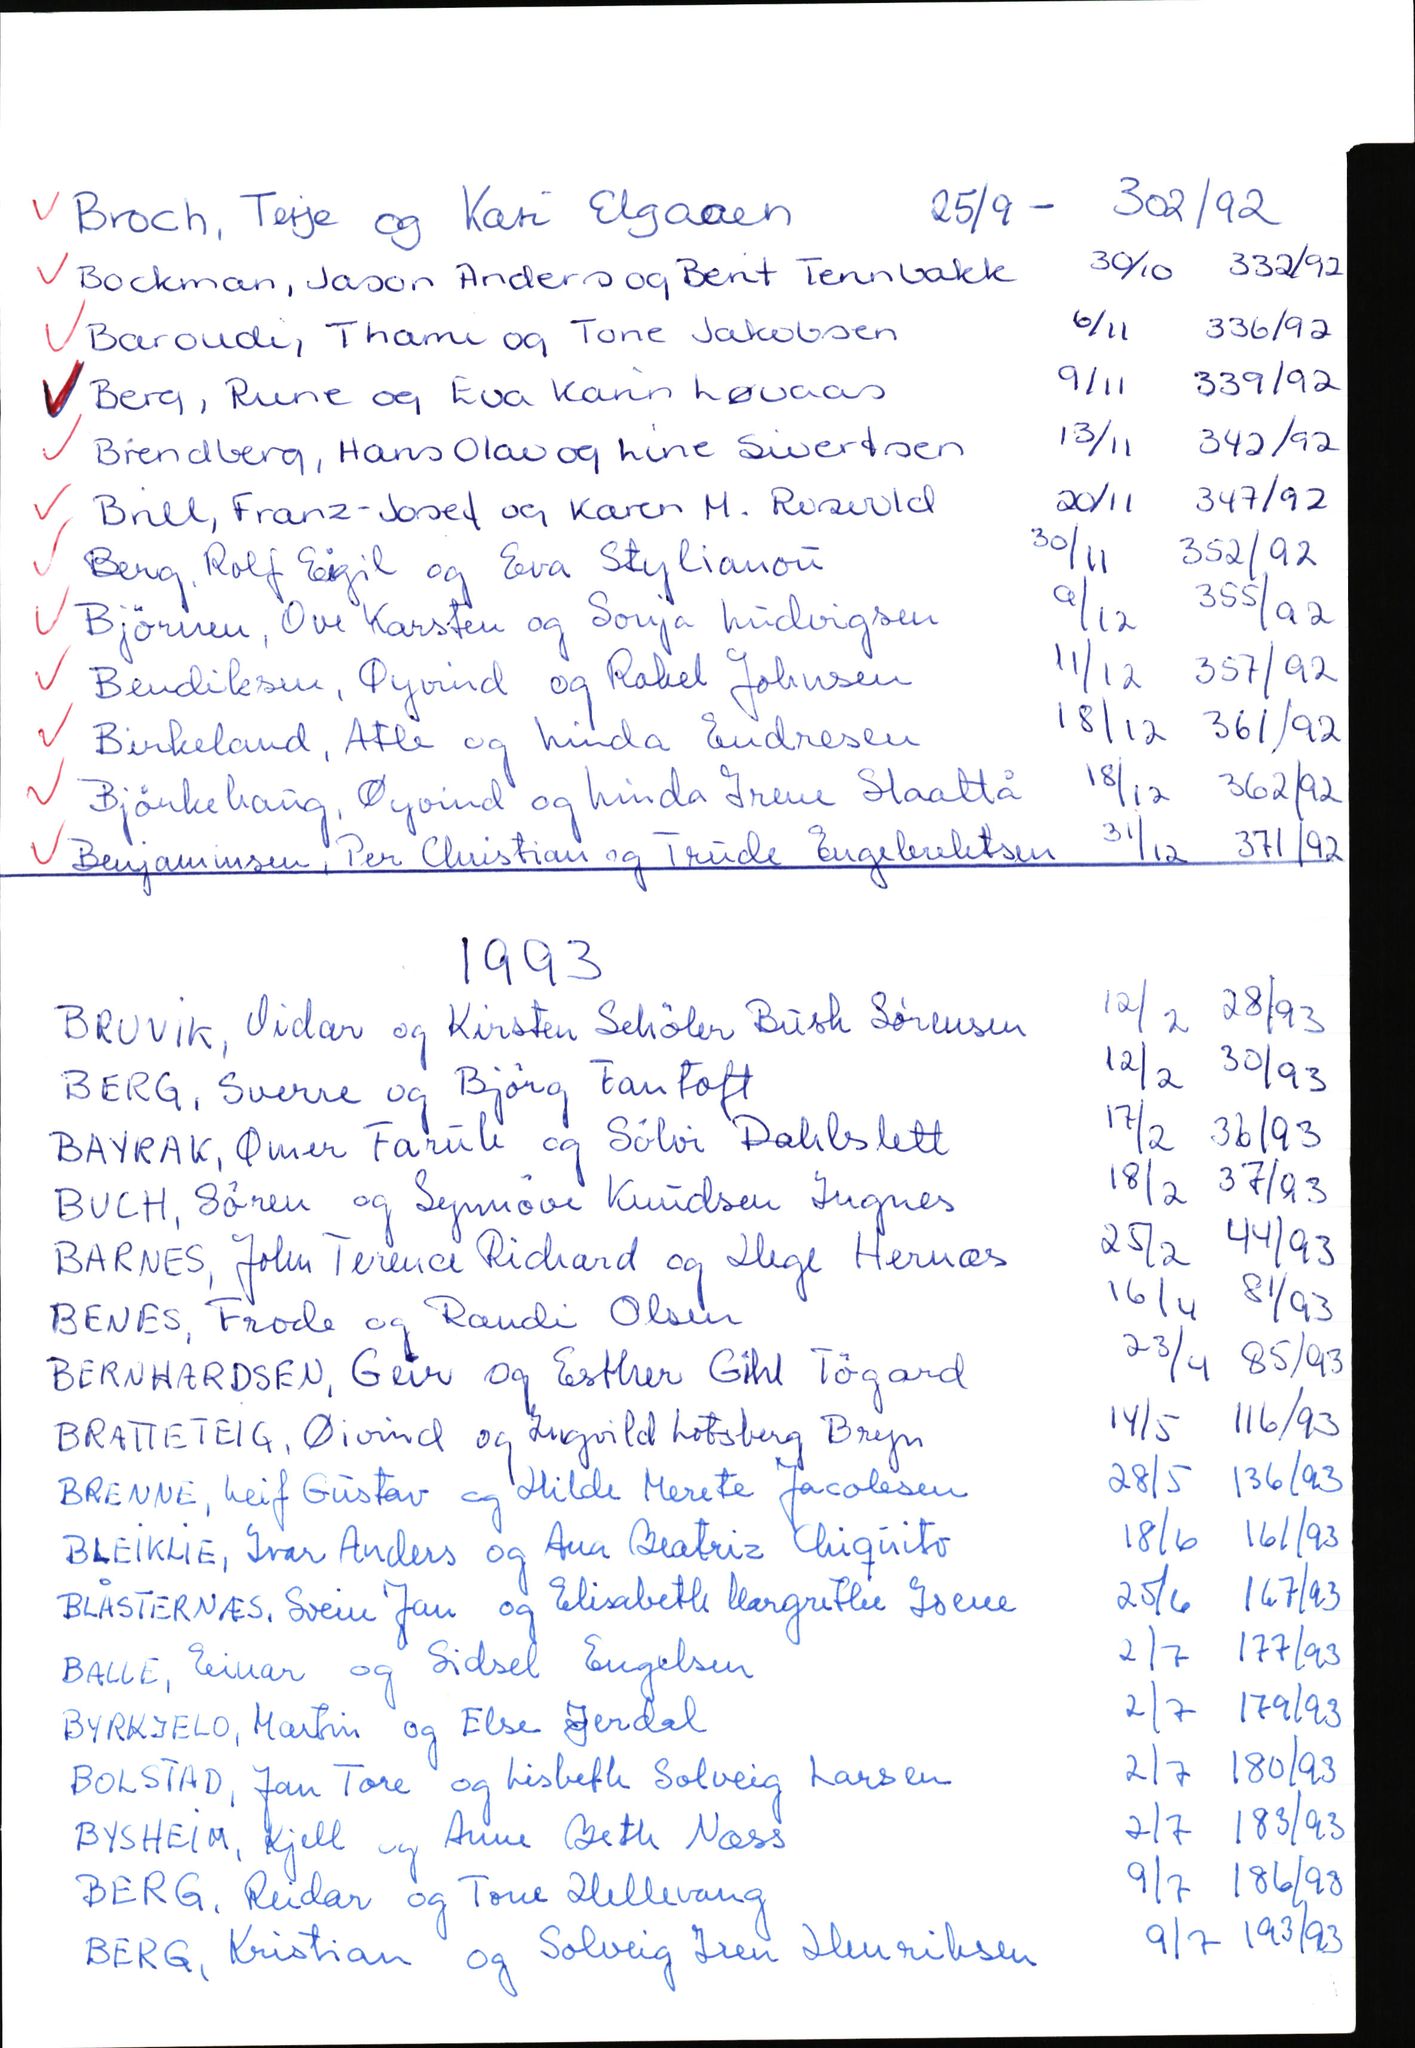 Broch, Terje og Kari Elgaaen 25/9 - 302/92
Bockman, Jason Anders og Berit Tennbakk 30/10 332/92
Baroudi, Thami og Tone Jakobsen 6/11 336/92
Berg, Rune og Eva Karin Løvaas 9/11 339/92
Brendberg, Hans Olav og Line Sivertsen 13/11 342/92
Brill, Franz-Josef og Karen M. Rosvold 20/11 347/92
Berg, Rolf Eigil og Eva Stylianou 30/11 352/92
Björnen, Ove Karsten og Sonja Ludvigsen 9/12 355/92
Bendiksen, Øyvind og Rakel Johnsen 11/12 357/92
Birkeland, Atle og Linda Endresen 18/12 361/92
Björkehaug, Øyvind og Linda Irene Slaattå 18/12 362/92
Benjaminsen, Per Christian og Trude Engebrektsen 31/12 371/92
1993
BRUVIK, Vidar og Kirsten Schöler Bush Sørensen 12/2 28/93
BERG, Sverre og Björg Fantoft 12/2 30/93
BAYRAK, Ømer Faruk og Sölvi Dahlslett 17/2 36/93
BUCH, Sören og Synnöve Knudsen Ingnes 18/2 37/93
BARNES, John Terence Richard og Hege Hernæs 25/2 44/93
BENES, Frode og Randi Olsen 16/4 81/93
BERNHARDSEN, Geir og Esther Gihl Tögard 23/4 85/93
BRATTETEIG, Øivind og Ingvild Lotsberg Bryn 14/5 116/93
BRENNE, Leif Gustav og Hilde Merete Jacobsen 28/5 136/93
BLEIKLIE, Ivar Anders og Ana Beatriz Chiquito 18/6 161/93
BLÅSTERNÆS, Svein Jan og Elisabeth Margrethe Isene 25/6 167/93
BALLE, Einar og Sidsel Engelsen 2/7 177/93
BYRKJELO, Martin og Else Jerdal 2/7 179/93
BOLSTAD, Jan Tore og Lisbeth Solveig Larsen 2/7 180/93
BYSHEIM, Kjell og Anne Beth Næss 2/7 183/93
BERG, Reidar og Tone Hellevang 9/7 186/93
BERG, Kristian og Solveig Iren Henriksen 9/7 193/93